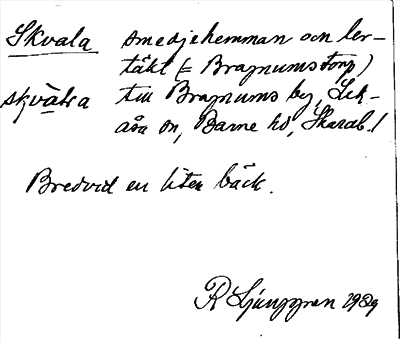 Skvala smedjehemman och ler-
täkt (= Bragnumstorp)
skvàlra till Bragnums by, Lek-
åsa sn, Barne hd, Skarab.l
Bredvid en liten bäck.
R Ljunggren 1929